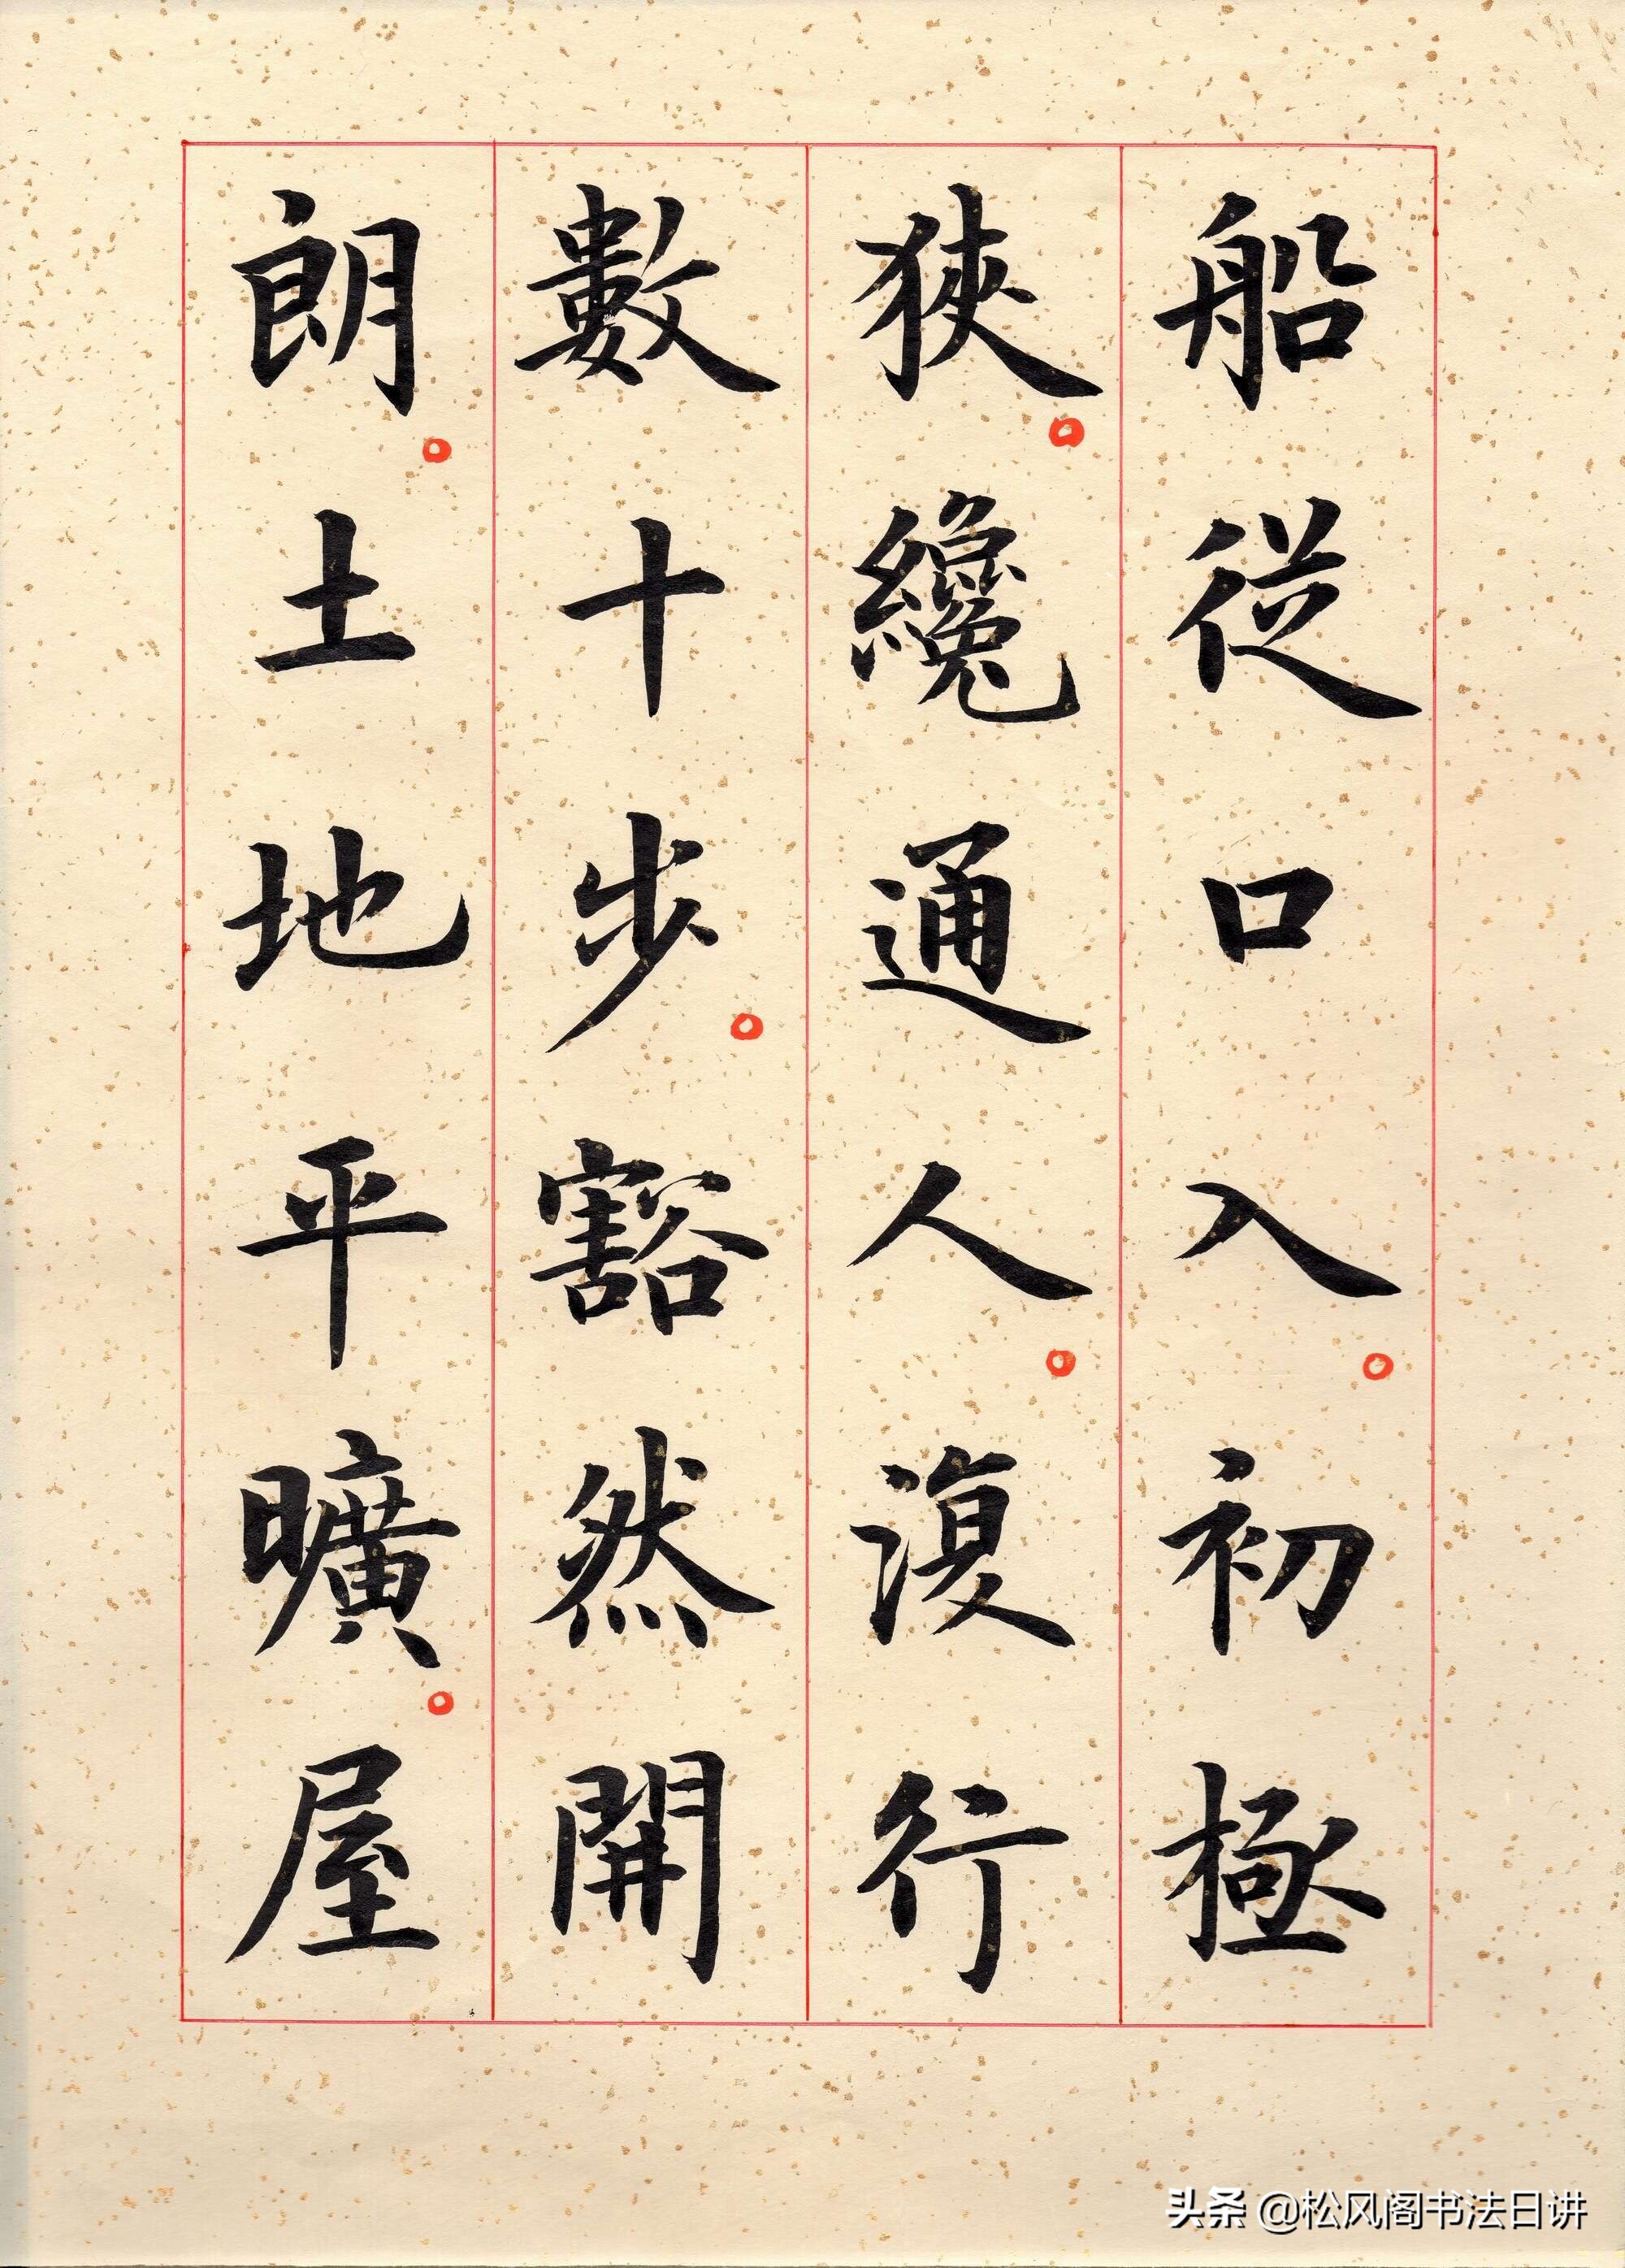 船從口入。初極
狹。纔通人。復行
數十步。豁然開
朗。土地平曠。屋
头条 @松风阁书法日讲